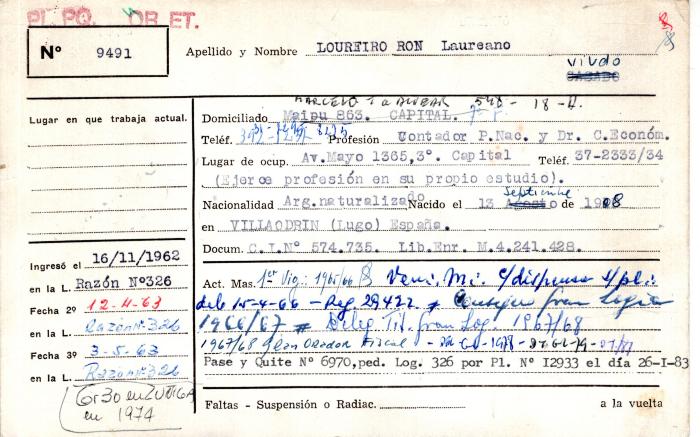 PL. PQ. DB ET.
Nº 9491
Apellido y Nombre LOUREIRO RON Laureano
viudo
CASADO
Lugar en que trabaja actual.
MARCELO T. de ALVEAR 548 - 18 -
Domiciliado Maipu 863. CAPITAL.
Teléf. Profesión Contador P.Nac. y Dr. C.Económ.
Lugar de ocup. Av.Mayo 1365,3º. Capital Teléf. 37-2333/34
(Ejerce profesión en su propio estudio).
septiembre
Nacionalidad Arg.naturalizado Nacido el 13 Agosto de 1908
en VILLAODRIN (Lugo) España.
Docum. C.I.Nº 574.735. Lib.Enr. M.4.241.428.
Ingresó el 16/11/1962
en la L. Razón Nº326
Fecha 2º 12-4-63
en la L. Razón Nº 326
Fecha 3º 3-5-63
en la L. Razón Nº 326
Gr 30 en
en 1974
Act. Mas. 1er Vig.: 1965/66 Ven. Mi. c/dispensa s/pl.:
deb 15-4-66 - Reg 29422 = Consejero Gran Logia
1966/67 = Deleg. Tit. Gran Log. 1967/68
1967/68 Gran Orador Fiscal -
Pase y Quite Nº 6970,ped. Log. 326 por Pl. Nº I2933 el día 26-I-83
Faltas - Suspensión o Radiac. a la vuelta